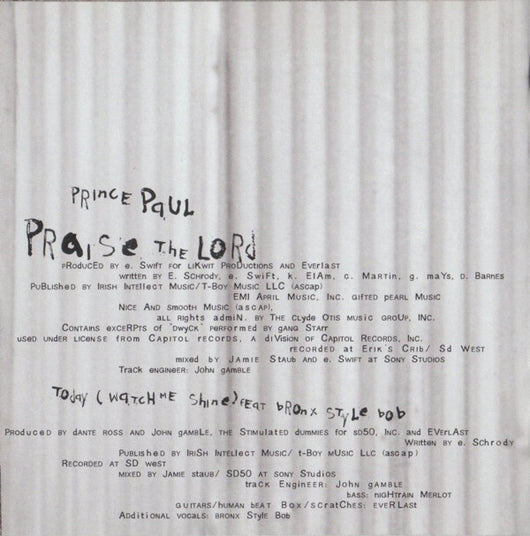 PRINCE PAUL
PRaiSe THE LORd
PRoducED by e. SwiFt FOR LiKwiT ProDuctions AND EverlaST
wriTTEN by E. ScHrody, e. SwiFt, k. ElAm, c. MarTin, g. maYs, D. BarNes
PubLisHed by IRisH INtelLect MUSic/T-Boy Music LLC (ascap)
EMI APRiL MUSic, INC. GiFted pearL Music
Nice AND Smooth MUSic (ascap),
aLL RigHts admiN. bY THE CLyde OTiS MUSic groUp, INC.
CoNtaiNs exceRPts of "DwycK" peRFoRmed by gaNG StaRR
used uNder LiceNSe fRom CapiToL recoRds, a diVisioN of CapiToL RecoRds, INC.
RecoRded aT ERiK's CRib/ Sd WEST
mixed by Jamie StauB aNd e. SwiFt aT SoNy STudios
TRack eNgiNeeR: JohN gAmBLE
TOday (WaTCH ME ShiNe) FEAT bRONX STYLe bOb
PRoduced by daNTe Ross aNd JohN gamBLe, THE STimuLated dummies foR sd50, INc. aNd EVeRLAst
WriTTeN by e. SchRody
PubLisHed by IRiSH INTeLLect MUSic/ t-Boy mUSic LLC (ascap)
RecoRded AT SD weST
mixed by Jamie sTaub/ SD50 AT soNy STudios
tracK ENgiNeeR: JohN gAMBLE
bass: NigHTRaiN MERLOT
guitaRs/HumaN beat Box/scRatcHes: eveRLAst
AdditioNaL vocaLs: bRoNx STyLe Bob